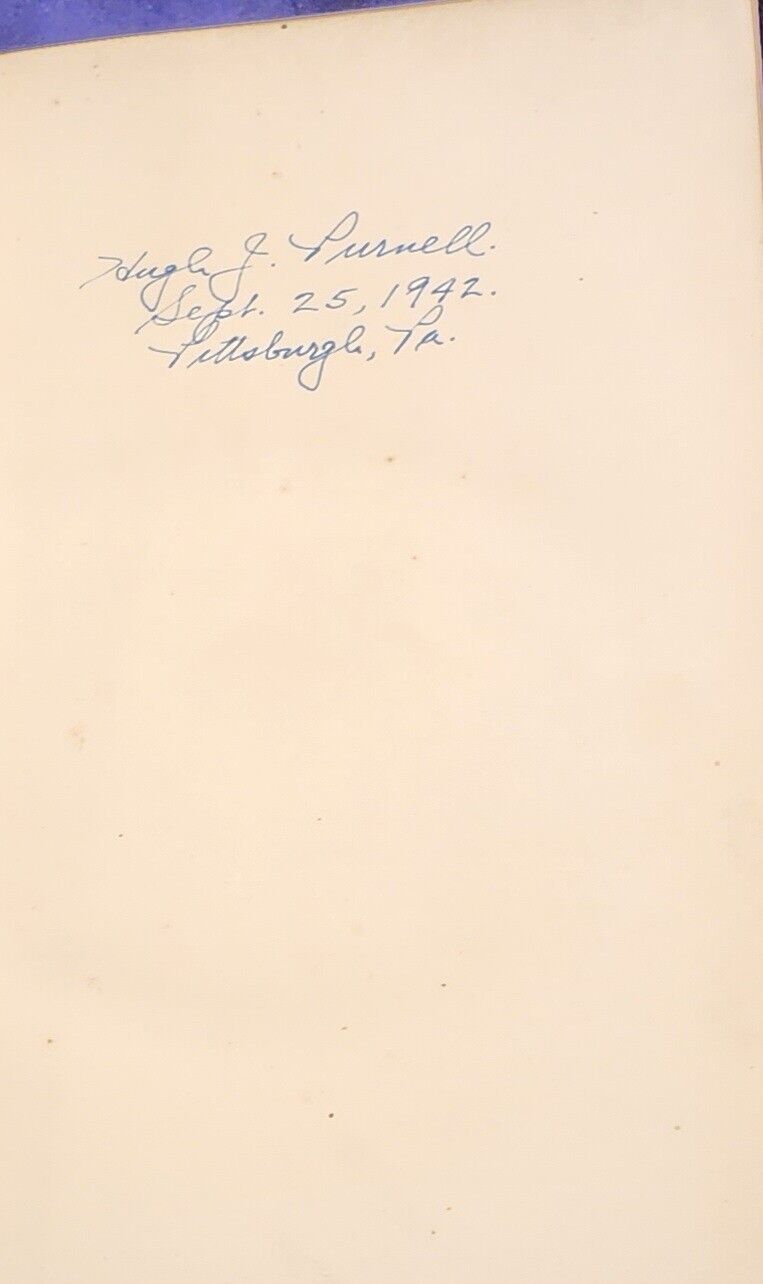 Hugh J. Purnell.
Sept. 25, 1942.
Pittsburgh, Pa.